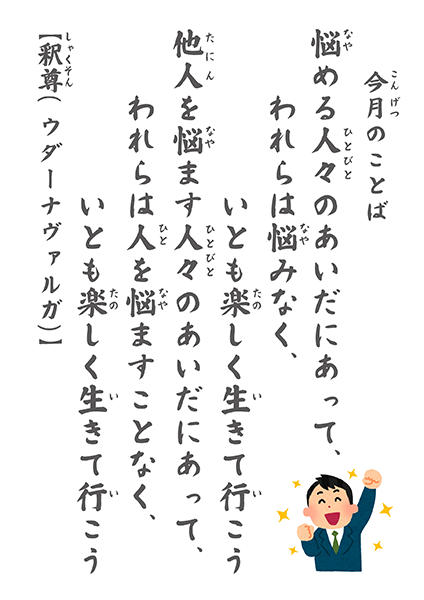 今月のことば
悩める人々のあいだにあって、
われらは悩みなく、
いとも楽しく生きて行こう
他人を悩ます人々のあいだにあって、
われらは人を悩ますことなく、
いとも楽しく生きて行こう
【釈尊(ウダーナヴァルガ)】